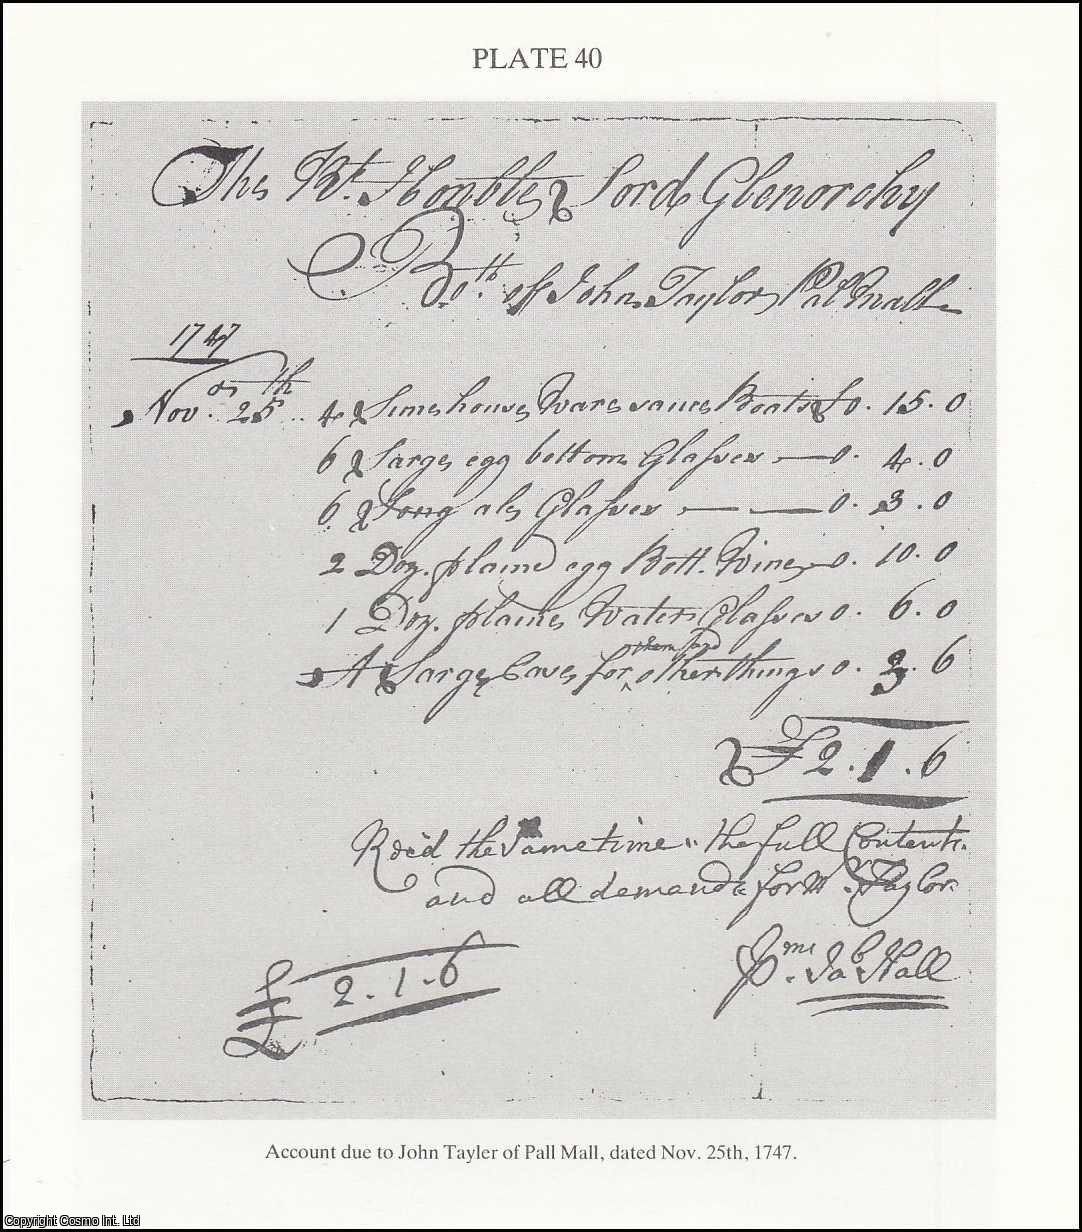 PLATE 40
The Rt. Honble Lord Glenorchy
Bot. of John Taylor Pal Mall
1747
Nov. 25th 4 Limehouse Ware sauce Boats £0. 15. 0
6 Large egg bottom Glasses — 0. 4. 0
6 Long ale Glasses — — 0. 3. 0
2 Doz. plaine egg Bott. Wine 0. 10. 0
1 Doz. plaine Water Glasses 0. 6. 0
them and
A Large Case for other things 0. 3. 6
£2. 1. 6
Reced the Same time the full Contents
and all demands for Mr. Taylor
£ 2. 1. 6
Ja Hall
Account due to John Tayler of Pall Mall, dated Nov. 25th, 1747.
Copyright Cosmo Int. Ltd